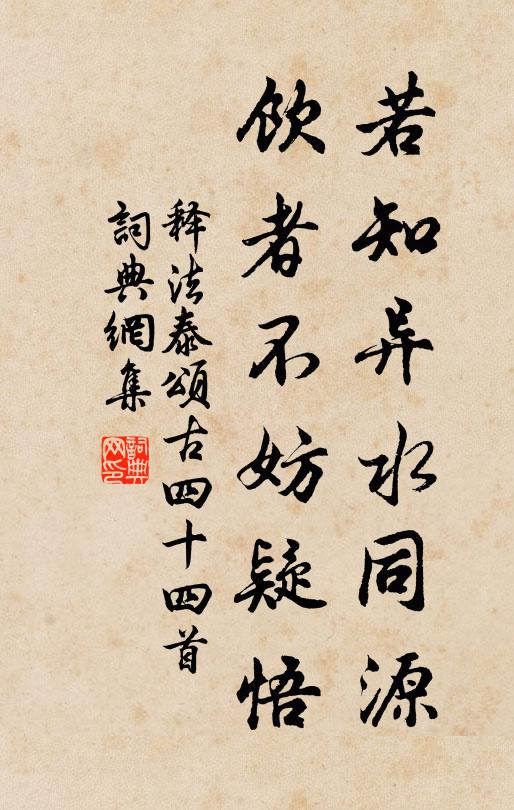 若知异水同源
飲者不妨疑悟
释法泰頌古四十四首
詞典網集
詞典网印